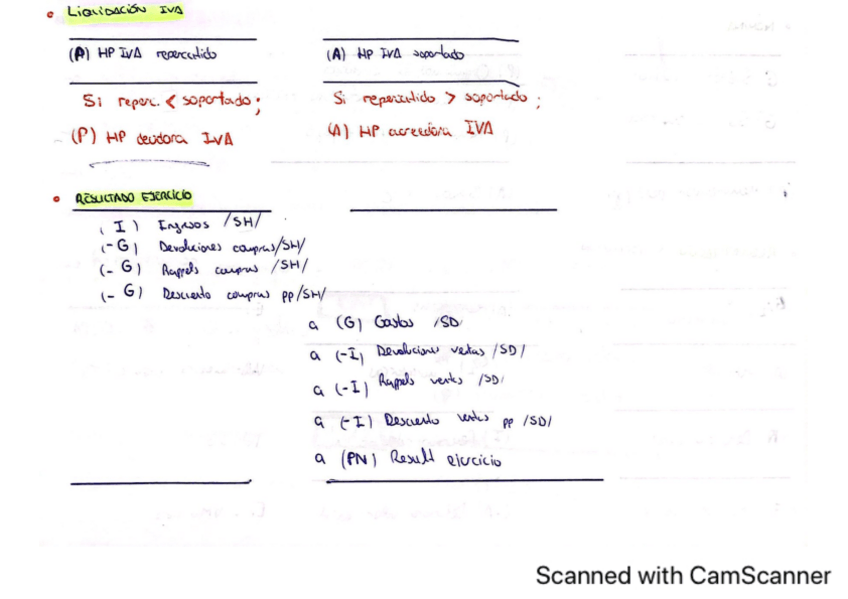 • Liquidación IVA
(P) HP IVA repercutido (A) HP IVA soportado
Si reperc. < soportado; Si repercutido > soportado;
(P) HP deudora IVA (A) HP acreedora IVA
• RESULTADO EJERCICIO
(I) Ingresos /SH/
(-G) Devoluciones compras/SH/
(-G) Rappels compras /SH/
(-G) Descuento compras pp/SH/
a (G) Gastos /SD/
a (-I) Devoluciones ventas /SD/
a (-I) Rappels ventas /SD/
a (-I) Descuento ventas pp /SD/
a (PN) Result ejercicio
Scanned with CamScanner